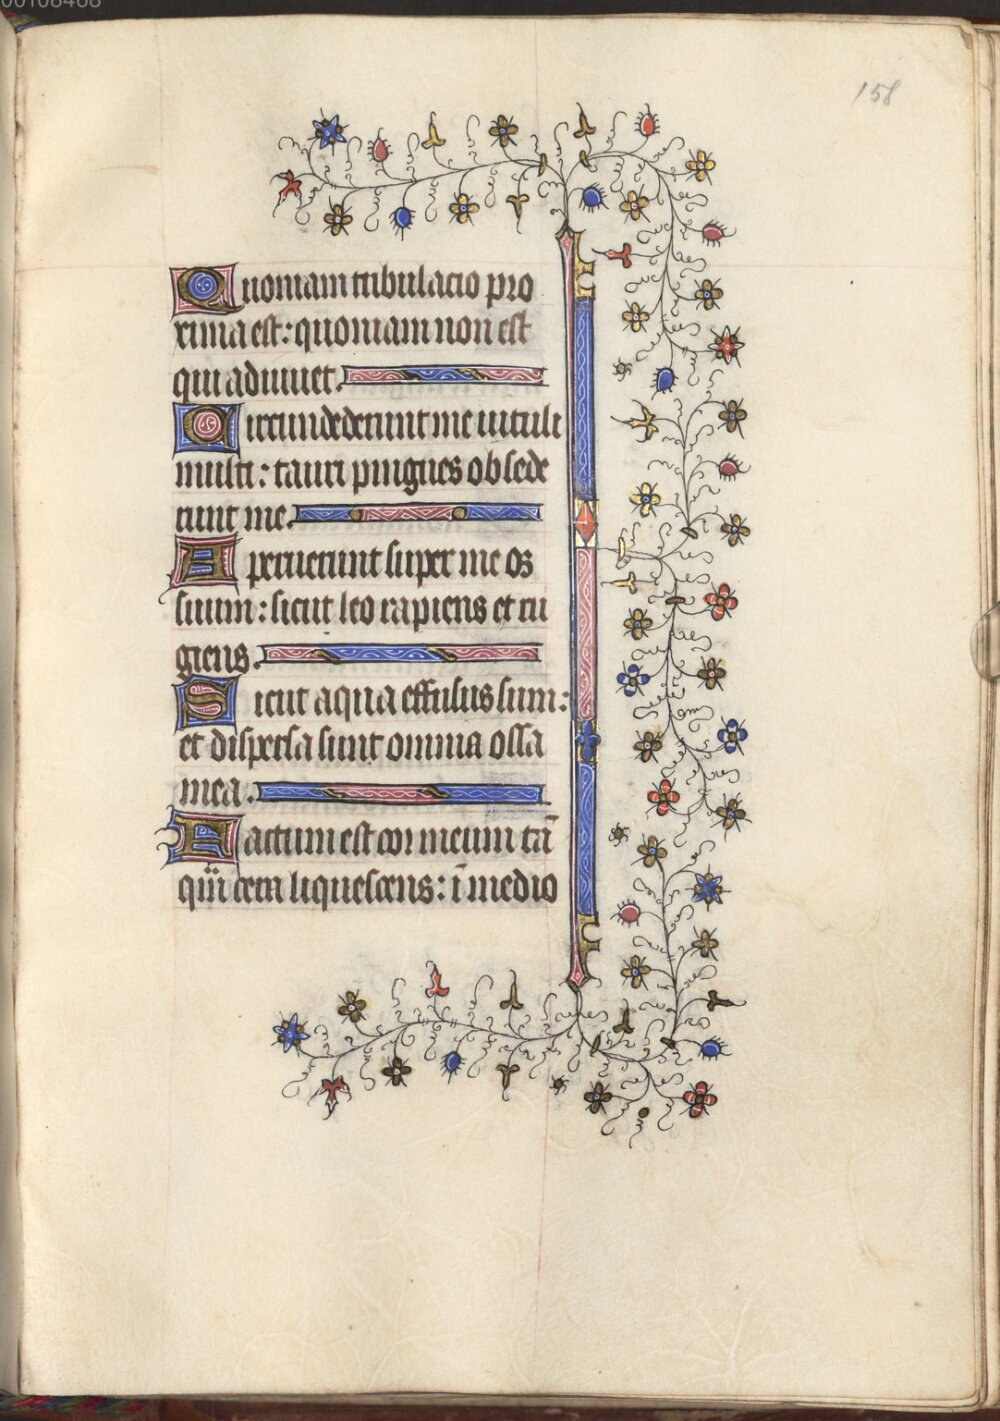 00108468
158
Quoniam tribulacio pro
xima est: quoniam non est
qui adiuuet.
Circundederunt me uituli
multi: tauri pingues obsede
runt me.
Aperuerunt super me os
suum: sicut leo rapiens et ru
giens.
Sicut aqua effusus sum:
et dispersa sunt omnia ossa
mea.
Factum est cor meum tā
quā cera liquescens: ī medio